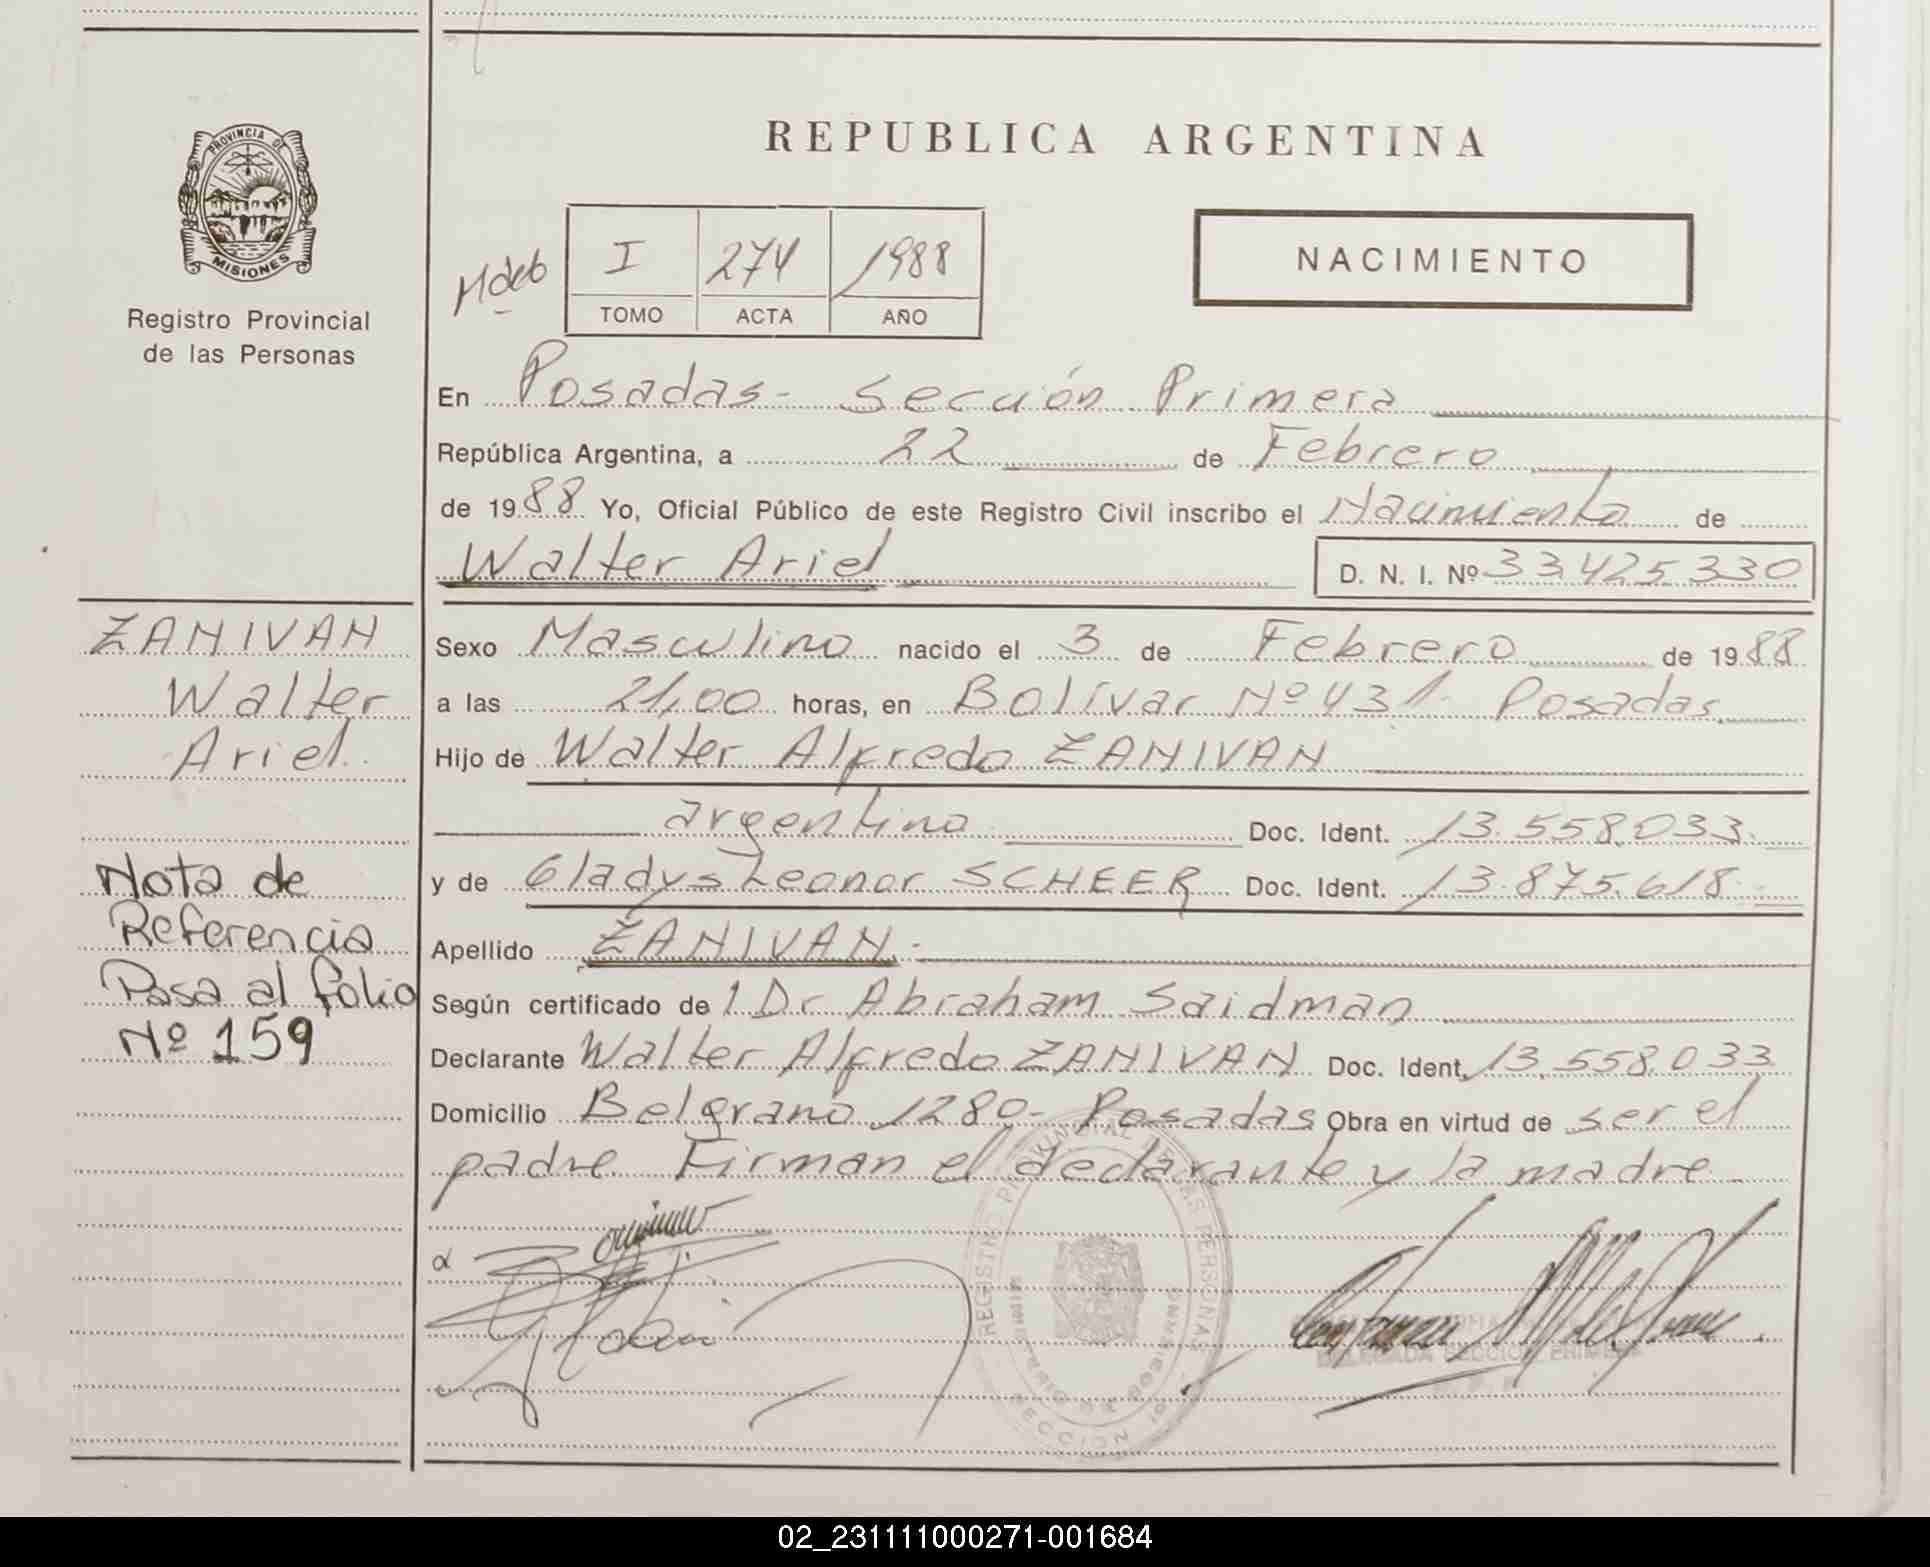 PROVINCIA DE
MISIONES
Registro Provincial
de las Personas
REPUBLICA ARGENTINA
I 274 1988
TOMO ACTA AÑO
NACIMIENTO
En Posadas - Sección Primera
República Argentina, a 22 de Febrero
de 1988 Yo, Oficial Público de este Registro Civil inscribo el Nacimiento de
Walter Ariel D. N. I. Nº 33.425.330
ZANIVAN
Walter
Ariel.
Nota de
Referencia
Pasa al folio
Nº 159
Sexo Masculino nacido el 3 de Febrero de 1988
a las 21,00 horas, en Bolívar Nº 431. Posadas
Hijo de Walter Alfredo ZANIVAN
argentino Doc. Ident. 13.558.033.
y de Gladys Leonor SCHEER Doc. Ident. 13.875.618.
Apellido ZANIVAN.
Según certificado de 1 Dr Abraham Saidman
Declarante Walter Alfredo ZANIVAN Doc. Ident. 13.558.033
Domicilio Belgrano 1280- Posadas Obra en virtud de ser el
padre Firman el declarante y la madre
REGISTRO PROVINCIAL DE LAS PERSONAS
SECCION
DELEGADA SECCION PRIMERA
02_231111000271-001684